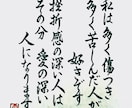 私は多く傷つき
多く苦しんだ人が
好きです
挫折感の深い人は
その分愛の深い
人になります